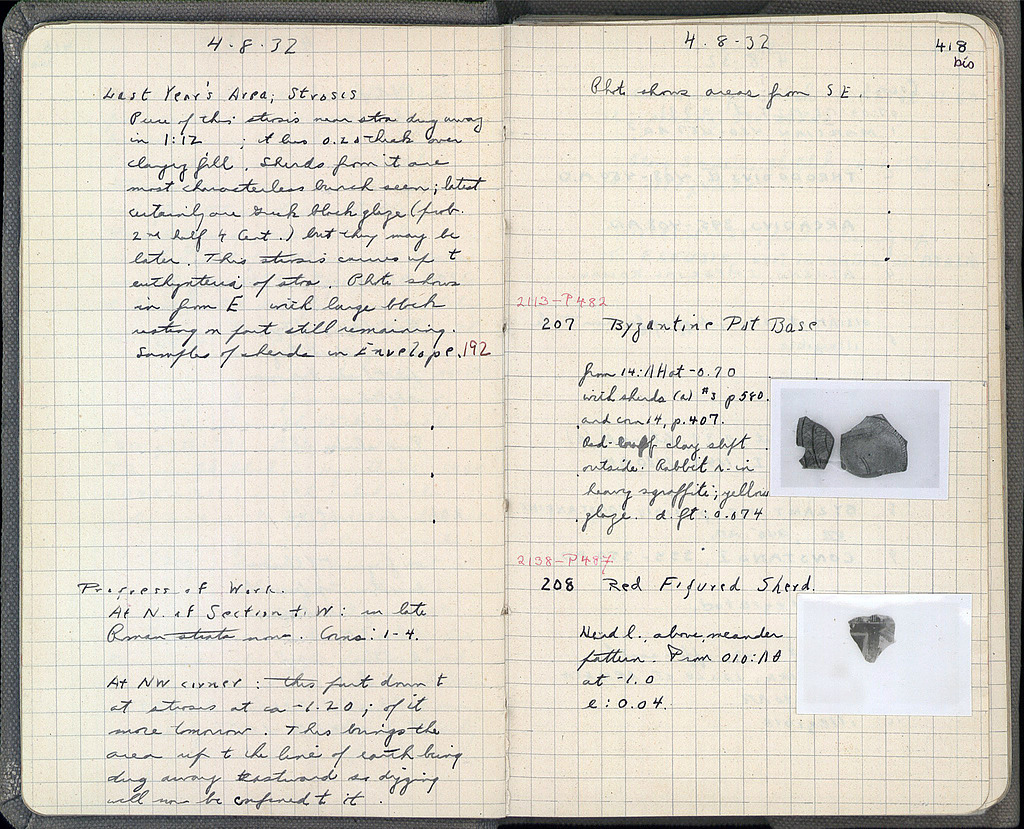 4-8-32
Last Year's Area; Strosis
Piece of this strosis near stoa dug away
in 1:12 ; it was 0.20 thick over
clayey fill. Sherds from it are
most characterless bunch seen; latest
certainly are Greek black glaze (prob.
2nd half 4 Cent.) but they may be
later. This strosis comes up t
euthynteria of stoa. Photo shows
in from E with large block
resting on part still remaining.
Samples of sherds in Envelope 192
Progress of Work.
At N. of Section + W: in late
Roman strata now. Coins: 1-4.
At NW corner: this part down t
at strosis at ca -1.20; of it
more tomorrow. This brings the
area up t the line of earth being
dug away Eastward so digging
will now be confined t it.
4-8-32
418
bis
Photo shows areas from SE.
2113-P482
207 Byzantine Pot Base
from 14:ΛH at -0.70
with sherds (a) #3 p 580.
and coin 14, p. 407.
Red-buff clay
outside. Rabbit r. in
heavy sgraffito; yellow
glaze. d ft: 0.074
2138-P487
208 Red Figured Sherd.
Head l., above, meander
pattern. From 010:ΛΘ
at -1.0
e: 0.04.